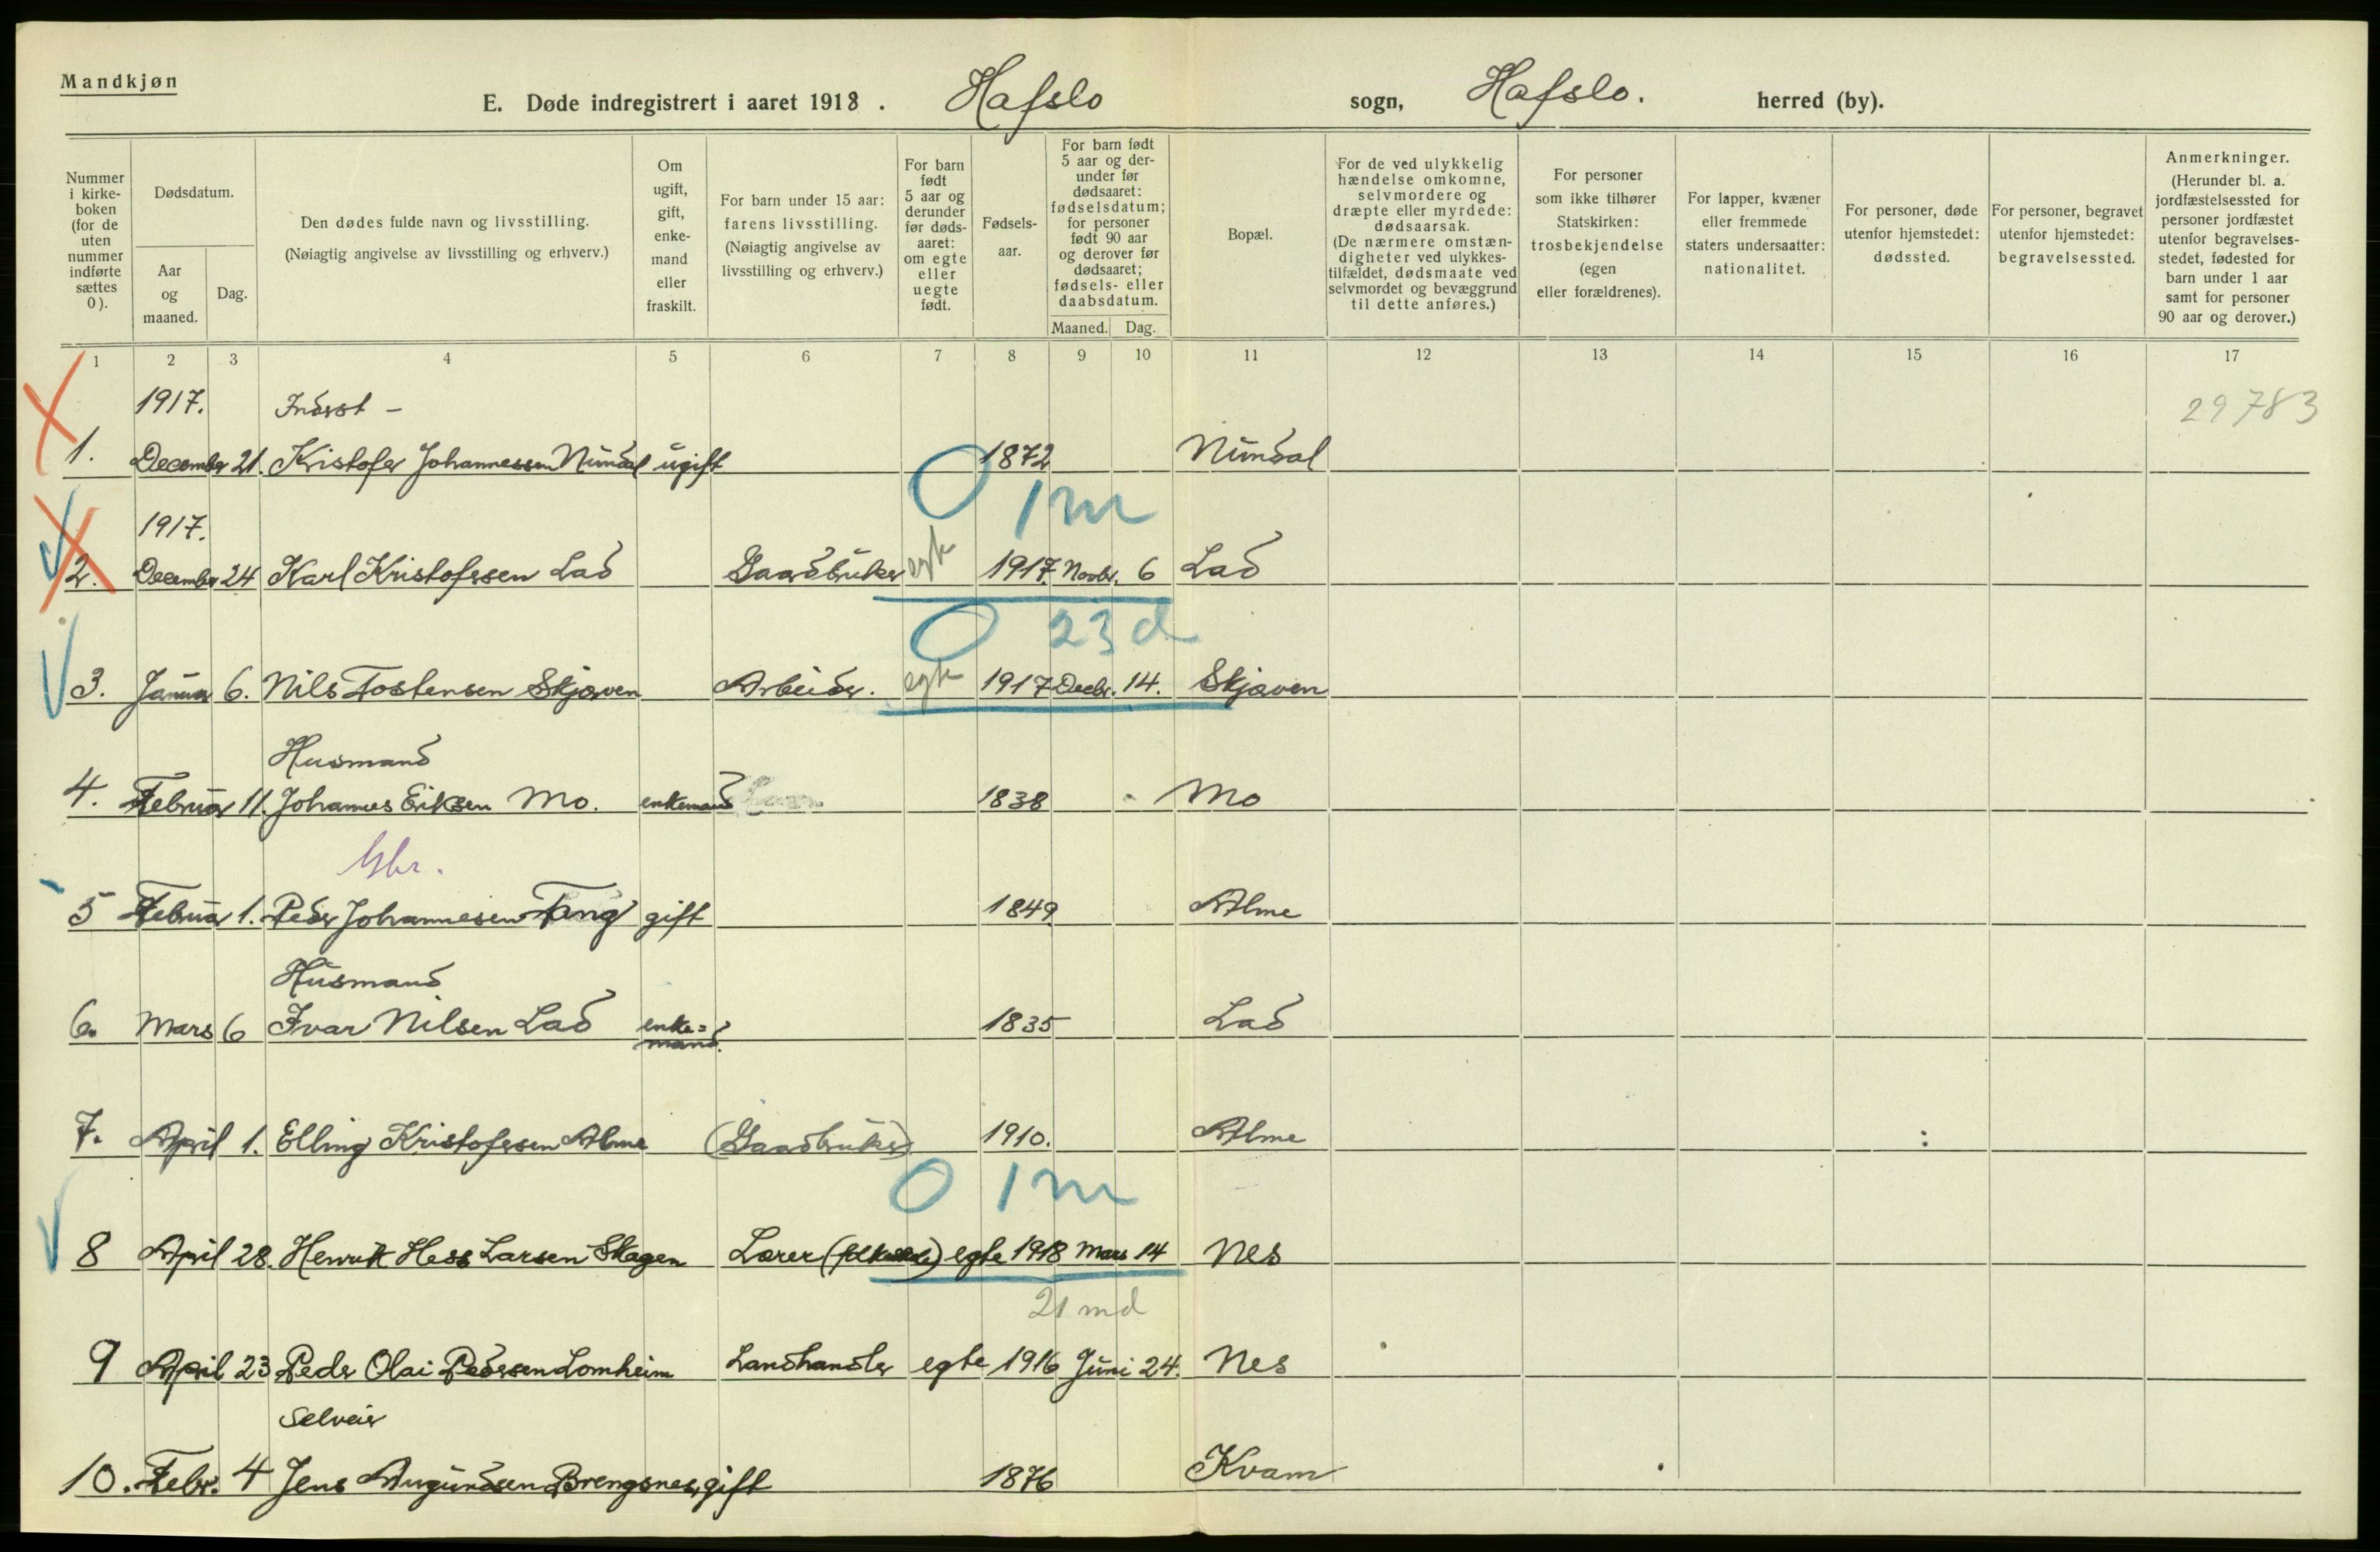 Mandkjøn
E. Døde indregistrert i aaret 1918. Hafslo sogn, Hafslo. herred (by).
Nummer i kirke- boken (for de uten nummer indførte sættes 0).
Dødsdatum.
Aar og maaned.
Dag.
Den dødes fulde navn og livsstilling.
(Nøiagtig angivelse av livsstilling og erhverv.)
Om ugift, gift, enke- mand eller fraskilt.
For barn under 15 aar: farens livsstilling. (Nøiagtig angivelse av livsstilling og erhverv.)
For barn født 5 aar og derunder før døds- aaret: om egte eller uegte født.
Fødsels- aar.
For barn født 5 aar og der- under før dødsaaret: fødselsdatum; for personer født 90 aar og derover før dødsaaret; fødsels- eller daabsdatum.
Maaned. Dag.
Bopæl.
For de ved ulykkelig hændelse omkomne, selvmordere og dræpte eller myrdede: dødsaarsak. (De nærmere omstæn- digheter ved ulykkes- tilfældet, dødsmaate ved selvmordet og bevæggrund til dette anføres.)
For personer som ikke tilhører Statskirken: trosbekjendelse (egen eller forældrenes).
For lapper, kvæner eller fremmede staters undersaatter: nationalitet.
For personer, døde utenfor hjemstedet: dødssted.
For personer, begravet utenfor hjemstedet: begravelsessted.
Anmerkninger. (Herunder bl. a. jordfæstelsessted for personer jordfæstet utenfor begravelses- stedet, fødested for barn under 1 aar samt for personer 90 aar og derover.)
1 2 3 4 5 6 7 8 9 10 11 12 13 14 15 16 17
1917. 29783
1. December 21. Kristofer Johannessen Nundal ugift 1872 Nundal
0 1m
1917.
2. December 24 Karl Kristofersen Lad Gaardbruker egte 1917. Novbr. 6 Lad
0 23 d
3. Januar 6. Nils Tostensen Skjerven Arbeider. egte 1917 Decbr. 14. Skjerven
Husmand
4. Februar 11. Johannes Eriksen Mo. enkemand 1838 Mo
Gbr.
5 Februar 1. Peder Johannesen Tang gift 1849 Alme
Husmand
6. Mars 6 Ivar Nilsen Lad enke= mand. 1835 Lad
7. April 1. Elling Kristofersen Alme (Gaardbruker) 1910. Alme
0 1m
8 April 28. Henrik Hess Larsen Skagen Lærer egte 1918 Mars 14 Nes
21 md
9 April 23 Peder Olai Pedersen Lomheim Landhandler egte 1916 Juni 24. Nes
Selveier
10. Febr. 4 Jens Augundsen Brengsnes, gift 1876 Kvam